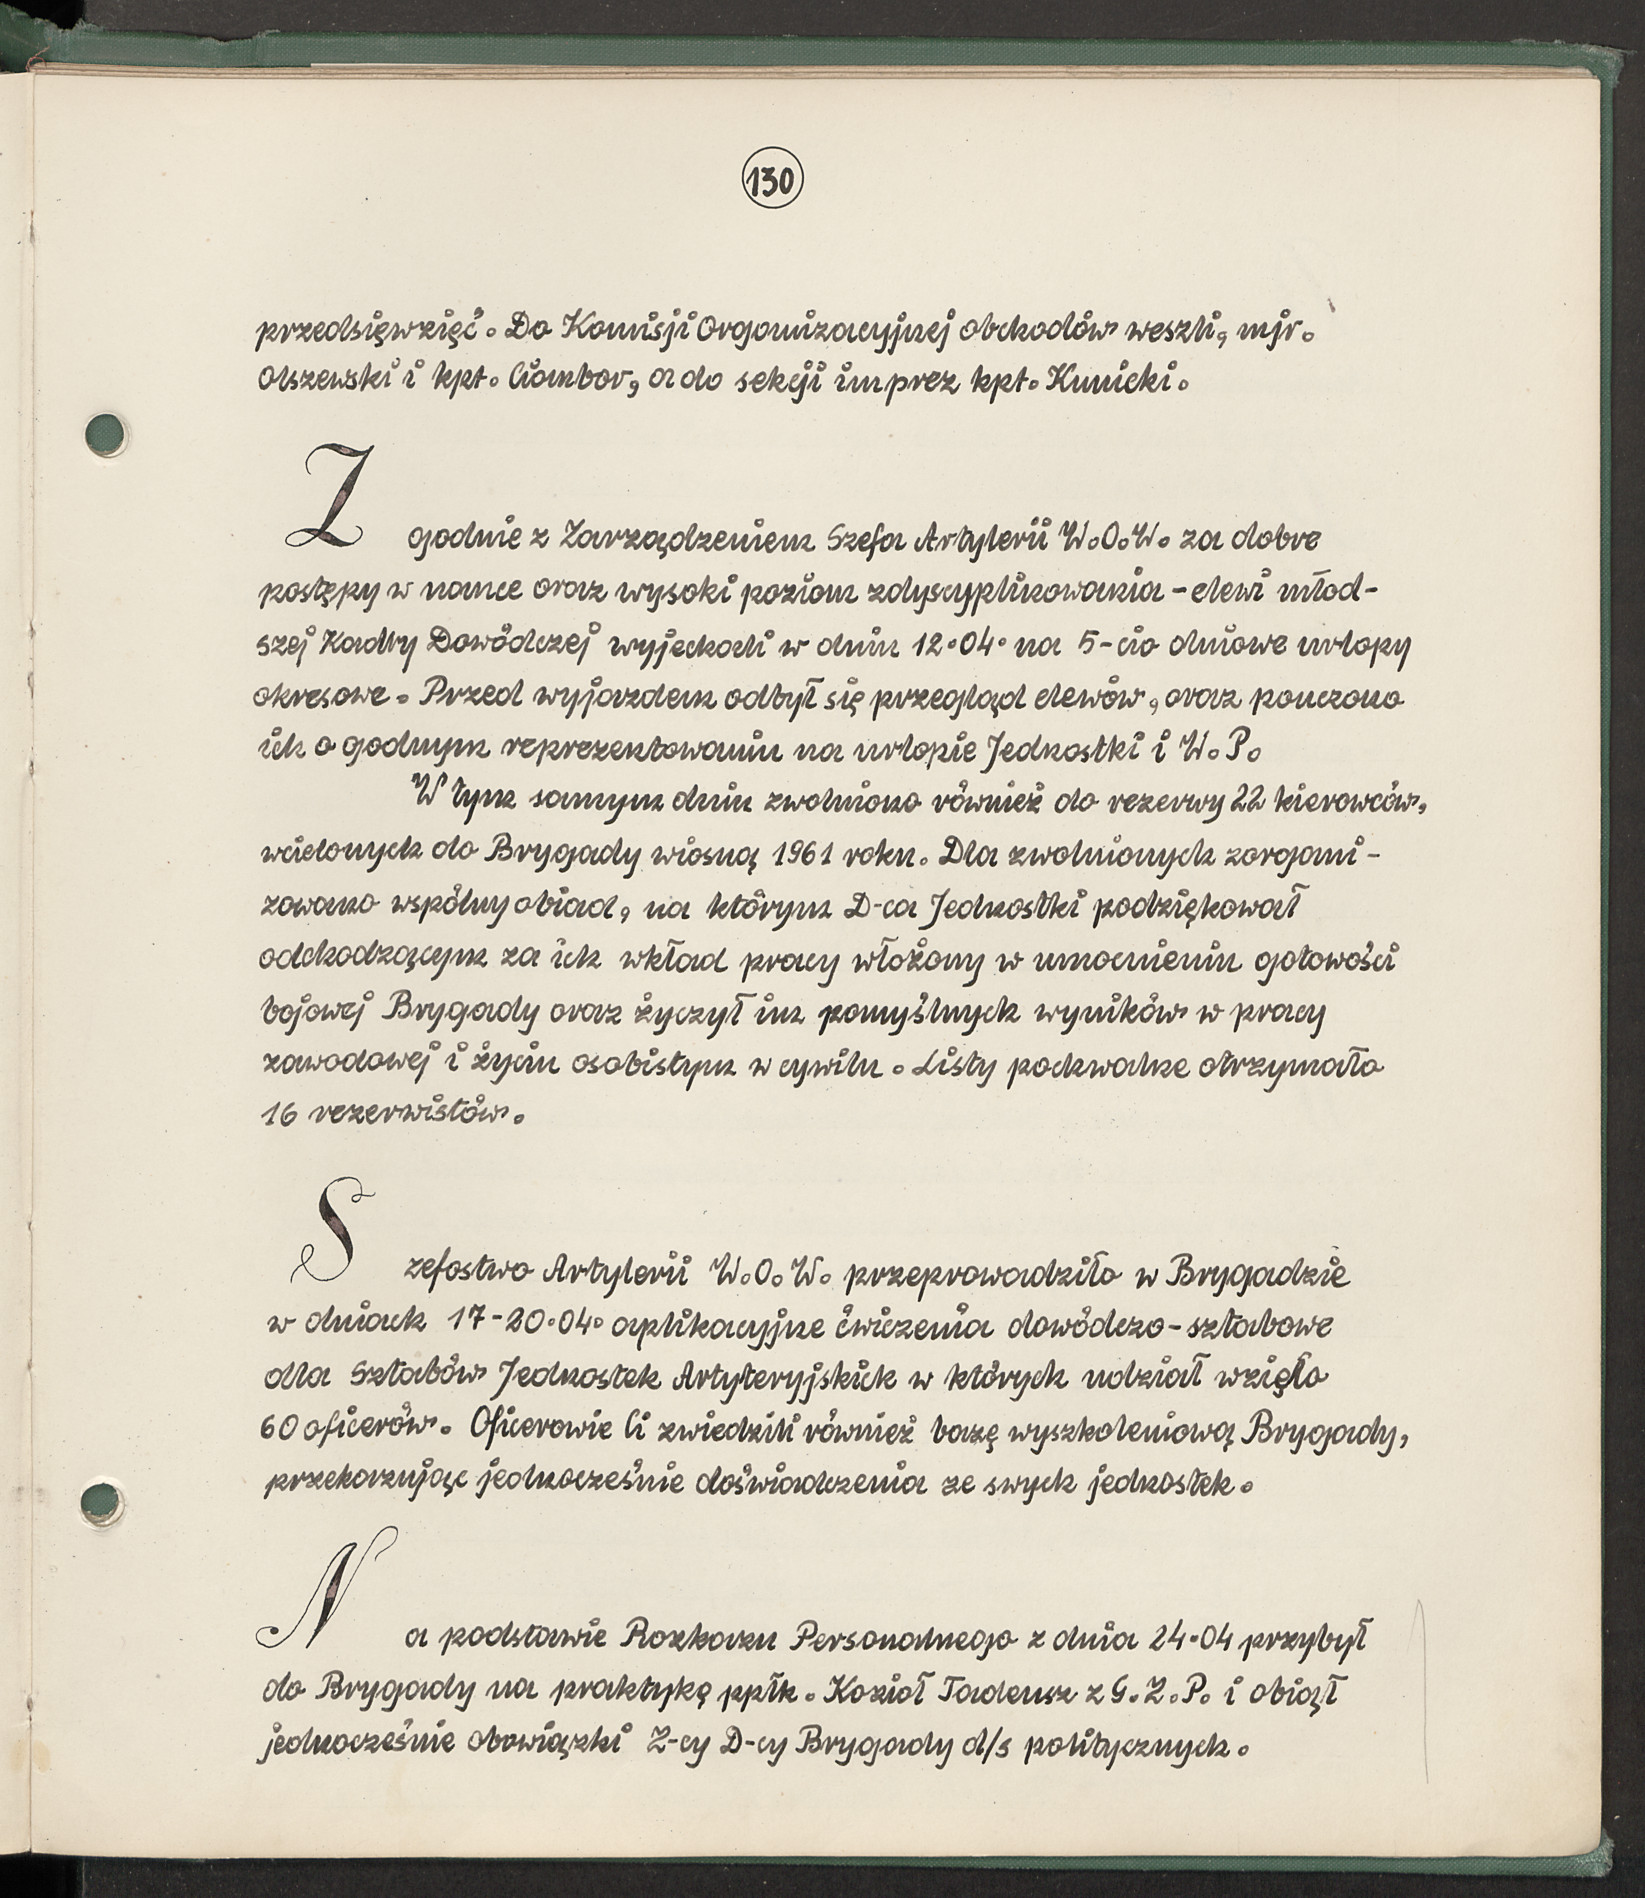 130
przedsięwzięć. Do Komisji Organizacyjnej obchodów weszli, mjr.
Olszewski i kpt. Ciombor, a do sekcji imprez kpt. Kunicki.
Zgodnie z Zarządzeniem Szefa Artylerii W.O.W. za dobre
postępy w nauce oraz wysoki poziom zdyscyplinowania - elewi młod-
szej Kadry Dowódczej wyjechali w dniu 12.04. na 5-cio dniowe urlopy
okresowe. Przed wyjazdem odbył się przegląd elewów, oraz pouczono
ich o godnym reprezentowaniu na urlopie Jednostki i W.P.
W tym samym dniu zwolniono również do rezerwy 22 kierowców,
wcielonych do Brygady wiosną 1961 roku. Dla zwolnionych zorgani-
zowano wspólny obiad, na którym D-ca Jednostki podziękował
odchodzącym za ich wkład pracy włożony w umocnieniu gotowości
bojowej Brygady oraz życzył im pomyślnych wyników w pracy
zawodowej i życiu osobistym w cywilu. Listy pochwalne otrzymało
16 rezerwistów.
Szefostwo Artylerii W.O.W. przeprowadziło w Brygadzie
w dniach 17-20.04. aplikacyjne ćwiczenia dowódczo-sztabowe
dla Sztabów Jednostek Artyleryjskich w których udział wzięło
60 oficerów. Oficerowie Ci zwiedzili również bazę wyszkoleniową Brygady,
przekazując jednocześnie doświadczenia ze swych jednostek.
Na podstawie Rozkazu Personalnego z dnia 24.04 przybył
do Brygady na praktykę ppłk. Kozioł Tadeusz z G.Z.P. i objął
jednocześnie obowiązki Z-cy D-cy Brygady d/s politycznych.